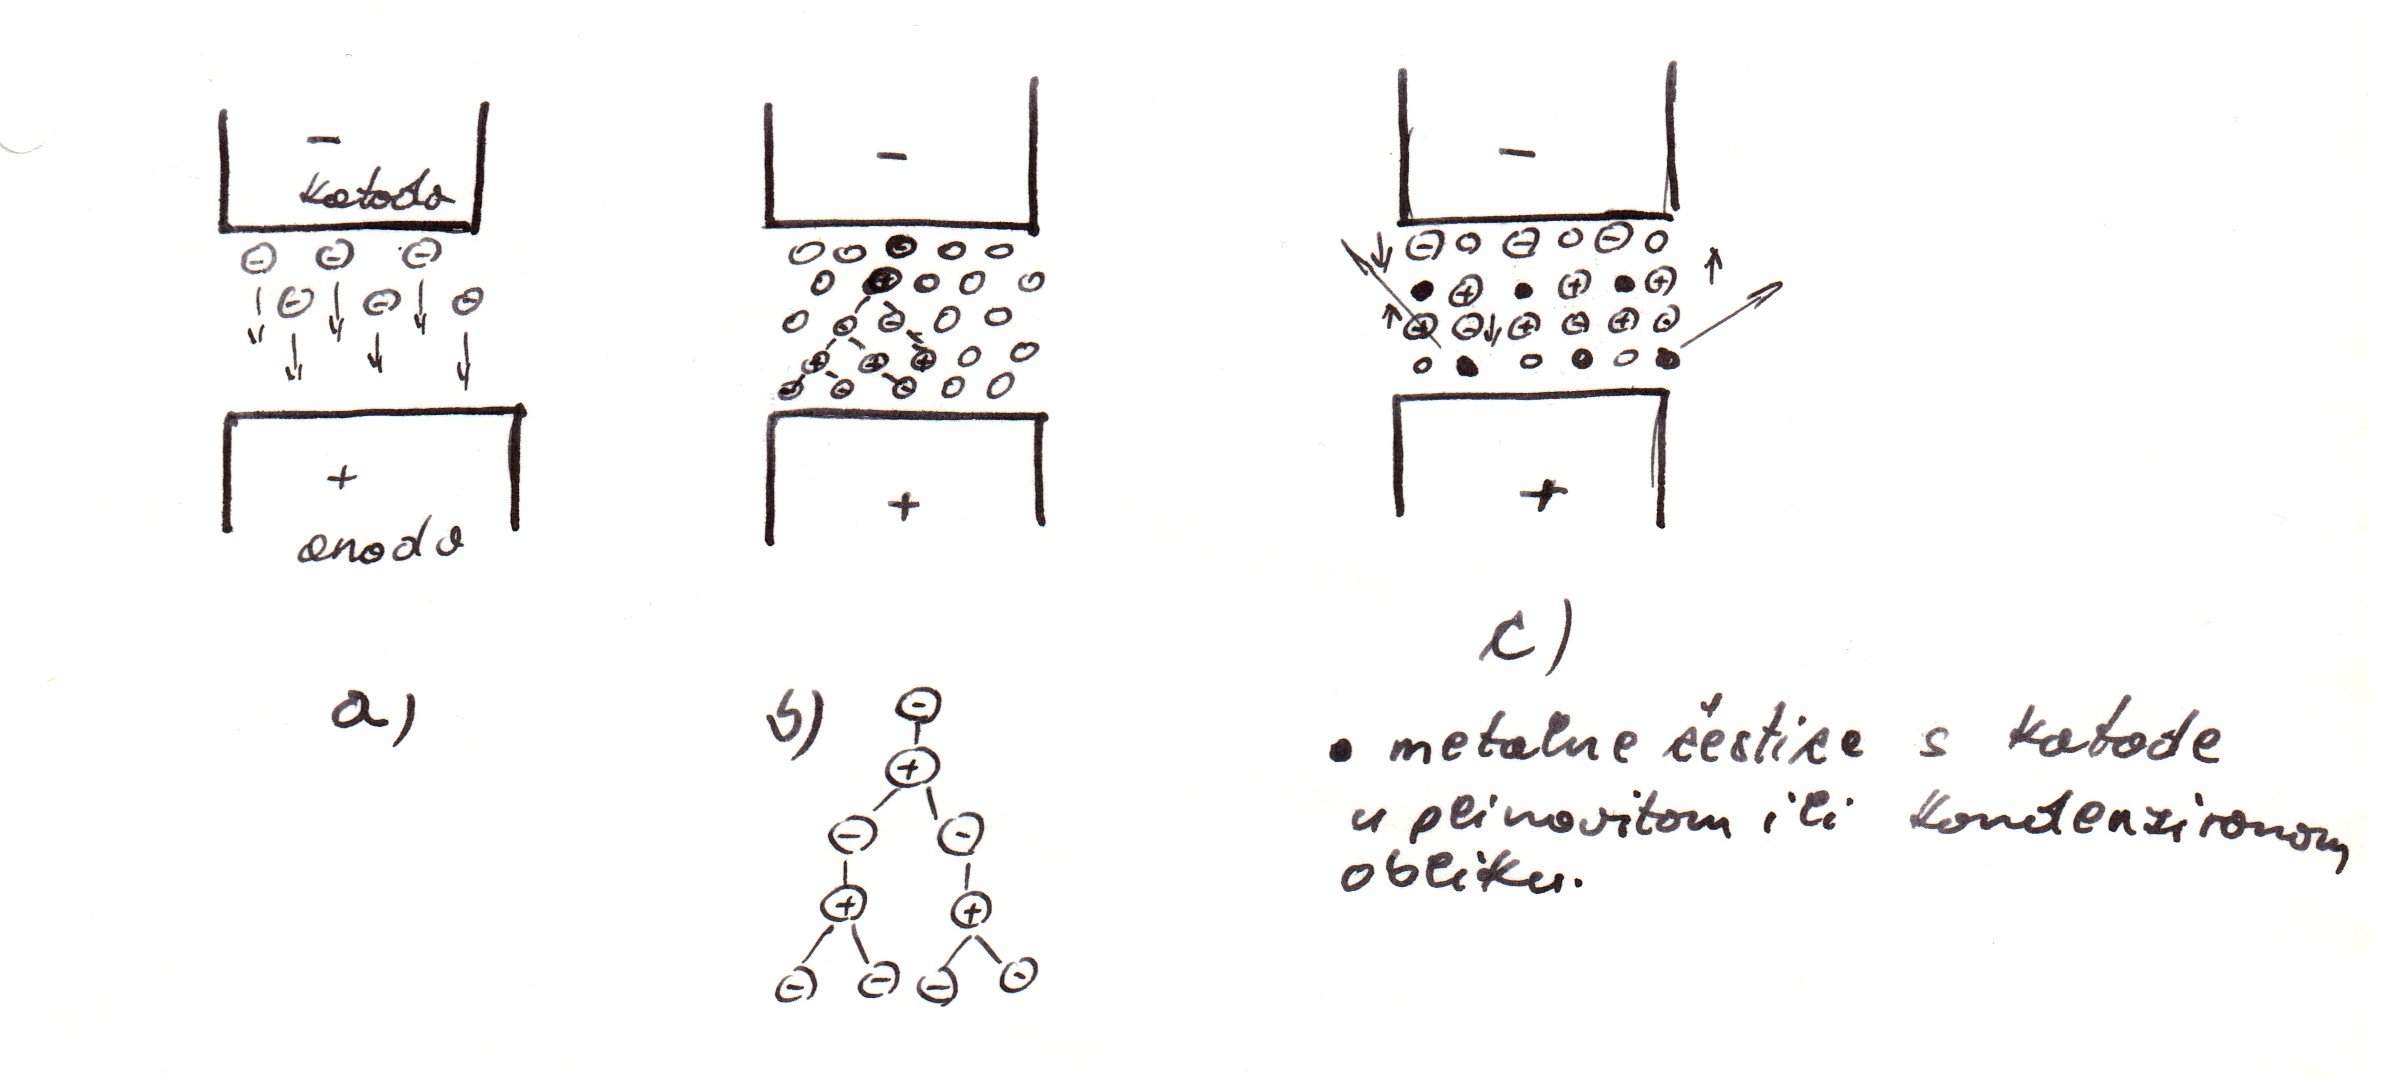 −
katoda
+
anoda
a)
−
+
b)
−
+
c)
• metalne čestice s katode
u plinovitom ili kondenziranom
obliku.